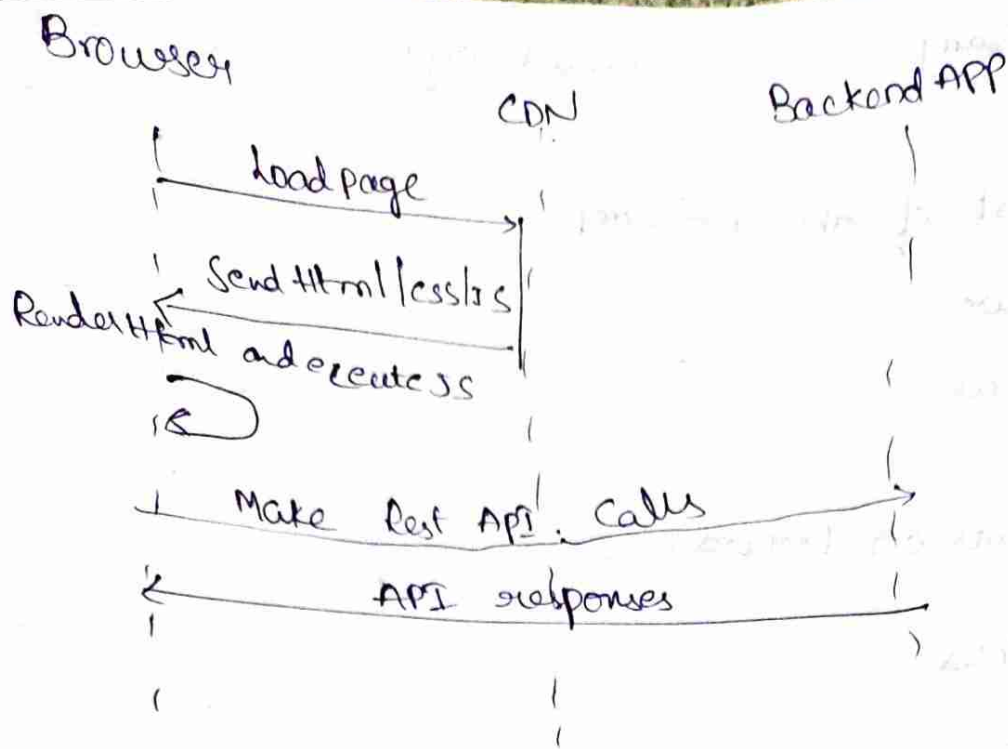 Browser
CDN
Backend APP
Load page
Send Html/css/JS
Render Html and execute JS
Make Rest API Calls
API responses